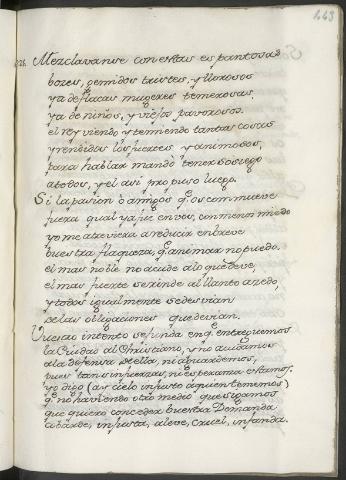 143
Mezclavanse con estas espantosas
bozes, gemidos tristes, y llorosos
ya de flacas mugeres temerosas,
ya de niños, y viejos pavorosos.
el rey viendo y temiendo tantas cosas
y rendidos los fuertes y animosos,
para hablar mandò tener sosiego
a todos, y el asi propuso luego.
Si la pasion ò amigos q̃ os commueve
fuera qual ya fue en vos, con menor miedo
yo me atreviera a reducir en breve
vuestra flaqueza, q̃ animar no puedo.
el mas noble no acude a lo que deve,
el mas fuerte se rinde al llanto azedo,
y todos igualmente se desvian
de las obligaciones que devian.
Vuestro intento se funda en q̃ entreguemos
la Ciudad al Christiano, y no acudamos
a la defensa della, ni aguardemos,
pues tan sin fuerzas, ni esperanza estamos.
yo digo (ay cielo injusto a quien tememos)
q̃ no haviendo otro medio que sigamos
que quiero conceder vuestra Demanda
cobarde, injusta, aleve, cruel, infanda.